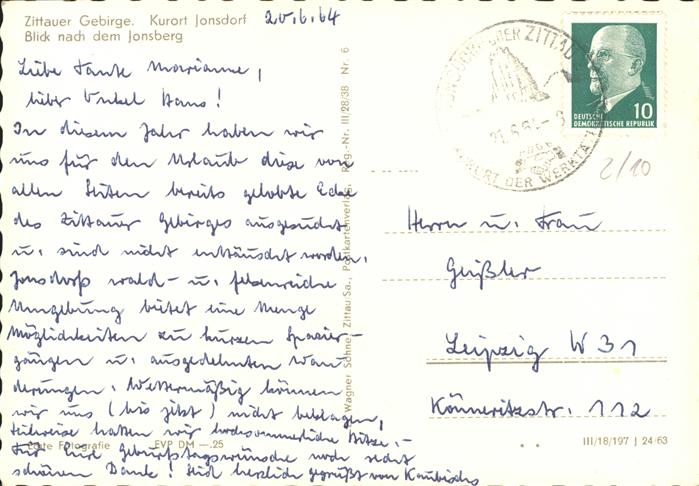 Zittauer Gebirge. Kurort Jonsdorf
Blick nach dem Jonsberg
20.6.64
Liebe Tante Marianne,
lieber Onkel Hans!
In diesem Jahr haben wir
uns für den Urlaub diese von
allen Seiten bereits gelobte Ecke
des Zittauer Gebirges ausgesucht
u. sind nicht enttäuscht worden.
Jonsdorfs wald- u. felsenreiche
Umgebung bietet eine Menge
Möglichkeiten zu kurzen Spazier-
gängen u. ausgedehnten Wan-
derungen. Wettermäßig können
wir uns (bis jetzt) nicht beklagen,
teilweise hatten wir hochsommerliche Hitze.-
Für Eure Geburtstagswünsche noch recht
schönen Dank! Seid herzlich gegrüßt von
Echte Fotografie EVP DM -.25
Wagner Söhne, Zittau Sa., Postkartenverlag, Reg.-Nr. III/28/38 Nr. 6
ZITTAU
KURORT DER WERKTÄTIGEN
DEUTSCHE
DEMOKRATISCHE REPUBLIK
10
2/10
Herrn u. Frau
Geißler
Leipzig W 31
Könneritzstr. 112
III/18/197 | 24/63